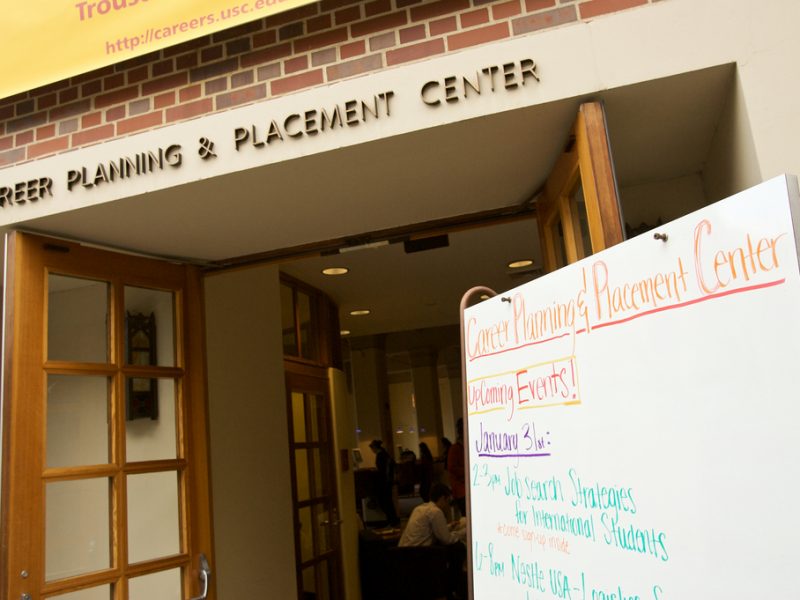 http://careers.usc.edu
CAREER PLANNING & PLACEMENT CENTER
Career Planning & Placement Center
Upcoming Events!
January 31st:
2-3pm Job search Strategies
for International Students
*come sign-up inside
6-8pm Nestle USA-Logistics